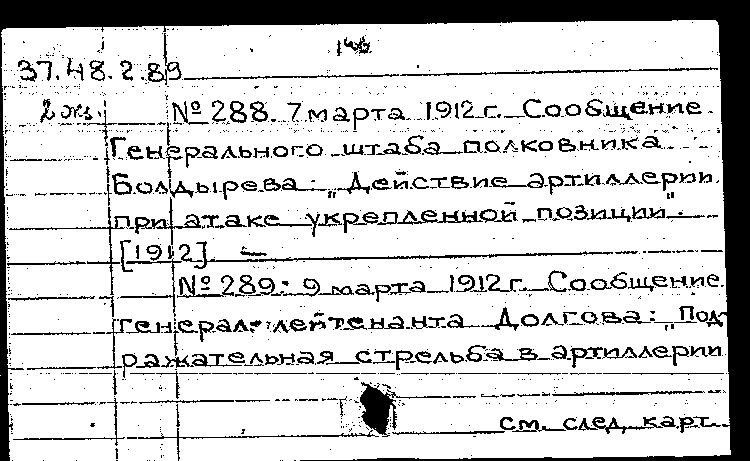 37.48.2.89
2 экз.
№ 288. 7 марта 1912 г. Сообщение
Генерального штаба полковника
Болдырева: „Действие артиллерии
при атаке укрепленной позиции".
[1912]. —
№ 289: 9 марта 1912 г. Сообщение
генерал-лейтенанта Долгова: „Под-
ражательная стрельба в артиллерии
см. след. карт.